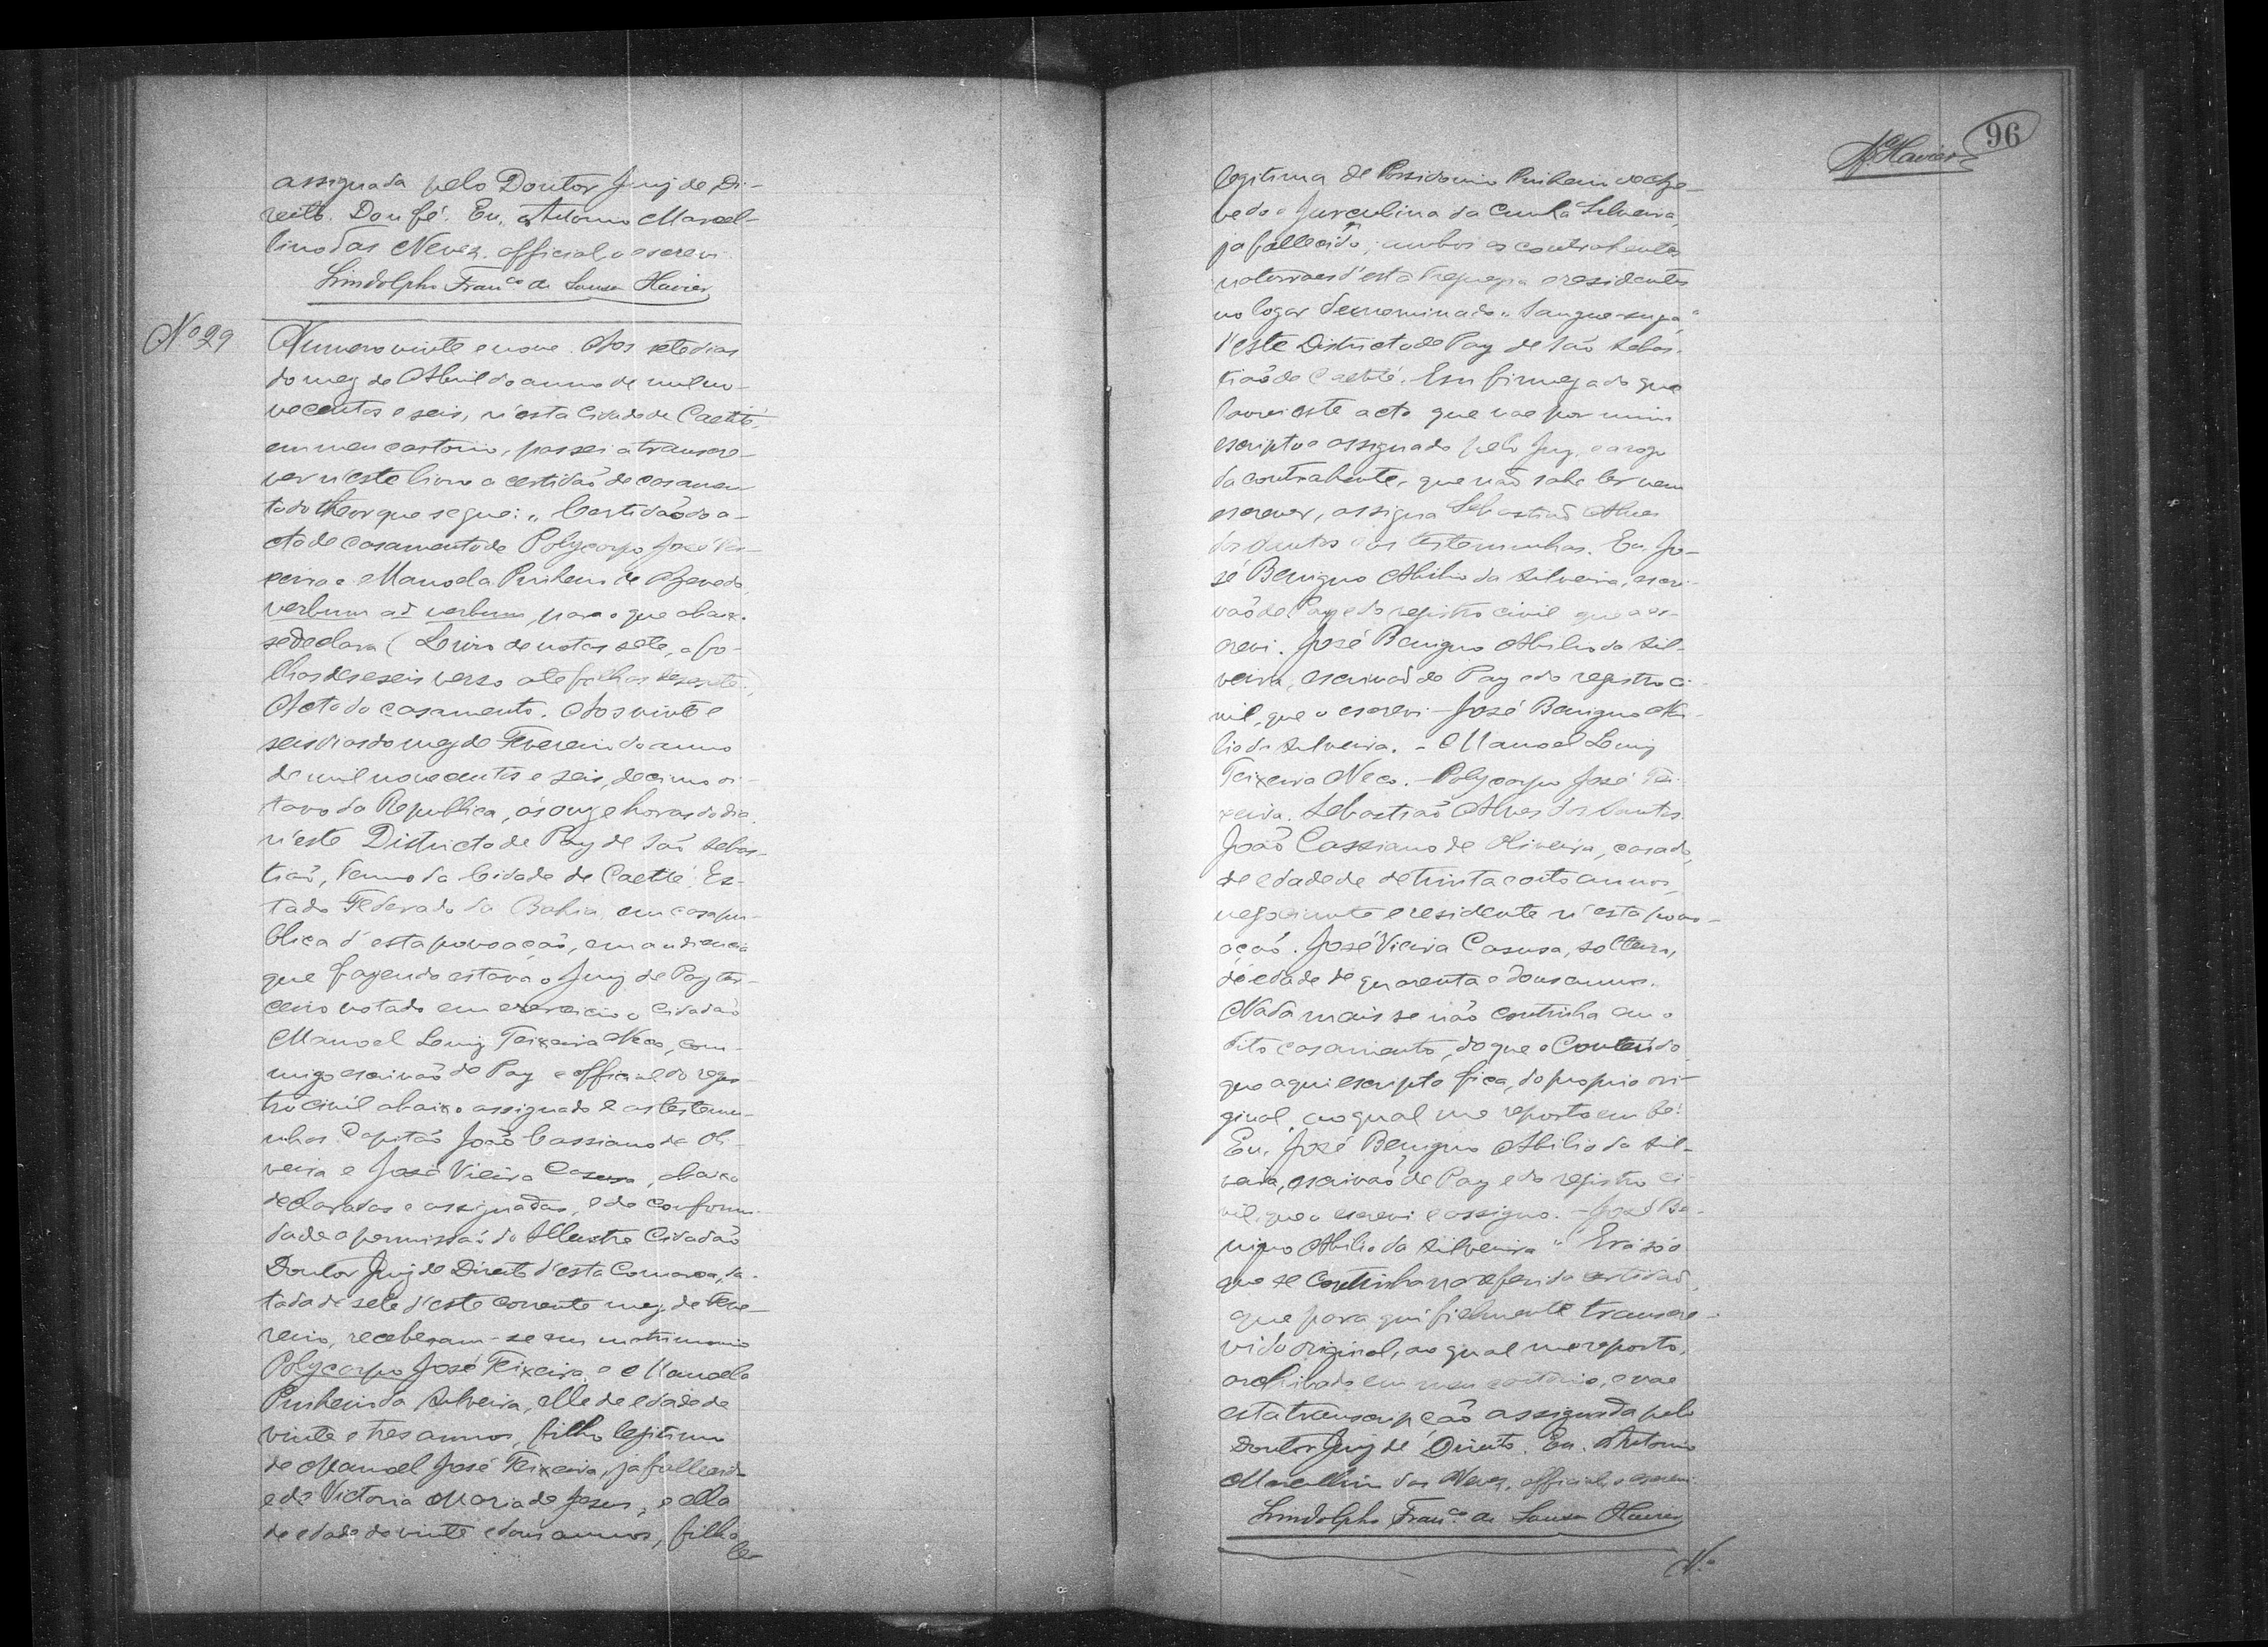 assignada pelo Doutor Juiz de Di-
reito. Dou fé. Eu, Antonio Marcel-
lino das Neves, official o escrevi.
Lindolpho Fran.co de Sousa Xavier
Nº 29
Numero vinte e nove. Aos sete dias
do mez de Abril do anno de mil no-
vecentos e seis, n'esta Cidade de Caetité,
em meu cartorio, passei a transcre-
ver n'este livro a certidão de casamen-
to do theor que segue: "Certidão do a-
cto de casamento de Polycarpo José Tei-
xeira e Manoela Pinheiro de Azevedo,
verbum ad verbum, para o que abaixo
se declara (Livro de notas sete, a fo-
lhas deseseis verso até folhas desesete.)
Acto do casamento. Aos vinte e
seis dias do mez de Fevereiro do anno
de mil novecentos e seis, decimo oi-
tavo da Republica, ás onze horas do dia,
n'este Districto de Paz de São Sebas-
tião, Termo da Cidade de Caetité, Es-
tado Federado da Bahia, em casa pu-
blica d'esta povoação, em audiencia
que fazendo estava o Juiz de Paz ter-
ceiro votado em exercicio o Cidadão
Manoel Luiz Teixeira Neco, com-
migo escrivão de Paz e official do regis-
tro civil abaixo assignado e as testemu-
nhas Capitão João Cassiano de Oli-
veira e José Vieira Casusa, abaixo
declaradas e assignadas, e de conformi-
dade a permissão do Illustre Cidadão
Doutor Juiz de Direito d'esta Comarca, da-
tada de sete d'este corrente mez de Feve-
reiro, receberam-se em matrimonio
Polycarpo José Teixeira e Manoela
Pinheiro da Silveira, elle de edade de
vinte e tres annos, filho legitimo
de Manoel José Teixeira, ja fallecido
e de Victoria Maria de Jesus, e ella
de edade de vinte e dous annos, filha
le-
96
Xavier
legitima de Possidonio Pinheiro de Aze-
vedo e Jurculina da Cunha Silveira,
ja fallecida; ambos os contrahentes
naturaes d'esta Freguezia e residentes
no logar denominado "Sanguesuga"
d'este Districto de Paz de São Sebas-
tião de Caetité. Em firmeza do que
lavrei este acto que vae por mim
escripto e assignado pelo Juiz, e a rogo
da contrahente, que não sabe ler nem
escrever, assigna Sebastião Alves
dos Santos e as testemunhas. Eu, Jo-
sé Benigno Abilio da Silveira, escri-
vão de Paz e do registro civil que o es-
crevi. José Benigno Abilio da Sil-
veira, escrivão de Paz e do registro ci-
vil, que o escrevi - José Benigno Abi-
lio da Silveira. - Manoel Luiz
Teixeira Neco. - Polycarpo José Tei-
xeira. Sebastião Alves dos Santos.
João Cassiano de Oliveira, casado,
de edade de de trinta e oito annos,
negociante e residente n'esta povo-
ação. José Vieira Casusa, solteiro,
de edade de quarenta e dous annos.
Nada mais se não continha em o
dito casamento, do que o Conteúdo
que aqui escripto fica, do proprio ori-
ginal, ao qual me reporto em fé.
Eu, José Benigno Abilio da Sil-
veira, escrivão de Paz e do registro ci-
vil, que o escrevi e assigno. - José Be-
nigno Abilio da Silveira" Era só o
que se continha na referida certidão,
que para qui fielmente transcre-
vi do original, ao qual me reporto,
archivado em meu cartorio, e vae
esta transcripção assignada pelo
Doutor Juiz de Direito. Eu, Antonio
Marcellino das Neves, official, o escrevi.
Lindolpho Fran.co de Sousa Xavier
Nº